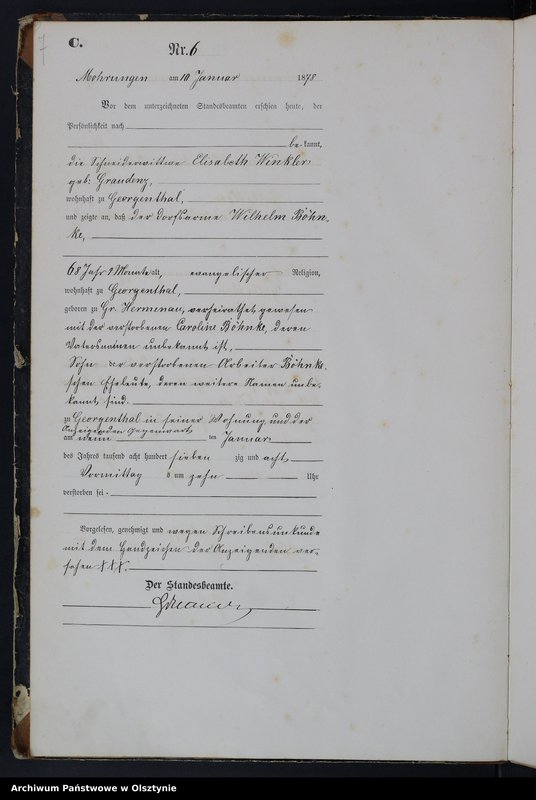 7
C.
Nr. 6
Mohrungen am 10 Januar 1878
Vor dem unterzeichneten Standesbeamten erschien heute, der
Persönlichkeit nach
be-kannt,
die Schneiderwittwe Elisabeth Winkler
geb: Graudenz,
wohnhaft zu Georgenthal,
und zeigte an, daß der Dorfsarme Wilhelm Böhn-
ke,
68 Jahr 2 Monate alt, evangelischer Religion,
wohnhaft zu Georgenthal,
geboren zu Gr. Hermenau, verheirathet gewesen
mit der verstorbenen Caroline Böhnke, deren
Vatersnamen unbekannt ist,
Sohn der verstorbenen Arbeiter Böhnke-
schen Eheleute, deren weitere Namen unbe-
kannt sind.
zu Georgenthal in seiner Wohnung und der
Anzeigenden Gegenwart
am neun ten Januar
des Jahres tausend acht hundert sieben zig und acht
Vormittag s um zehn Uhr
verstorben sei.
Vorgelesen, genehmigt und wegen Schreibensunkunde
mit dem Handzeichen der Anzeigenden ver-
sehen +++.
Der Standesbeamte.
Archiwum Państwowe w Olsztynie